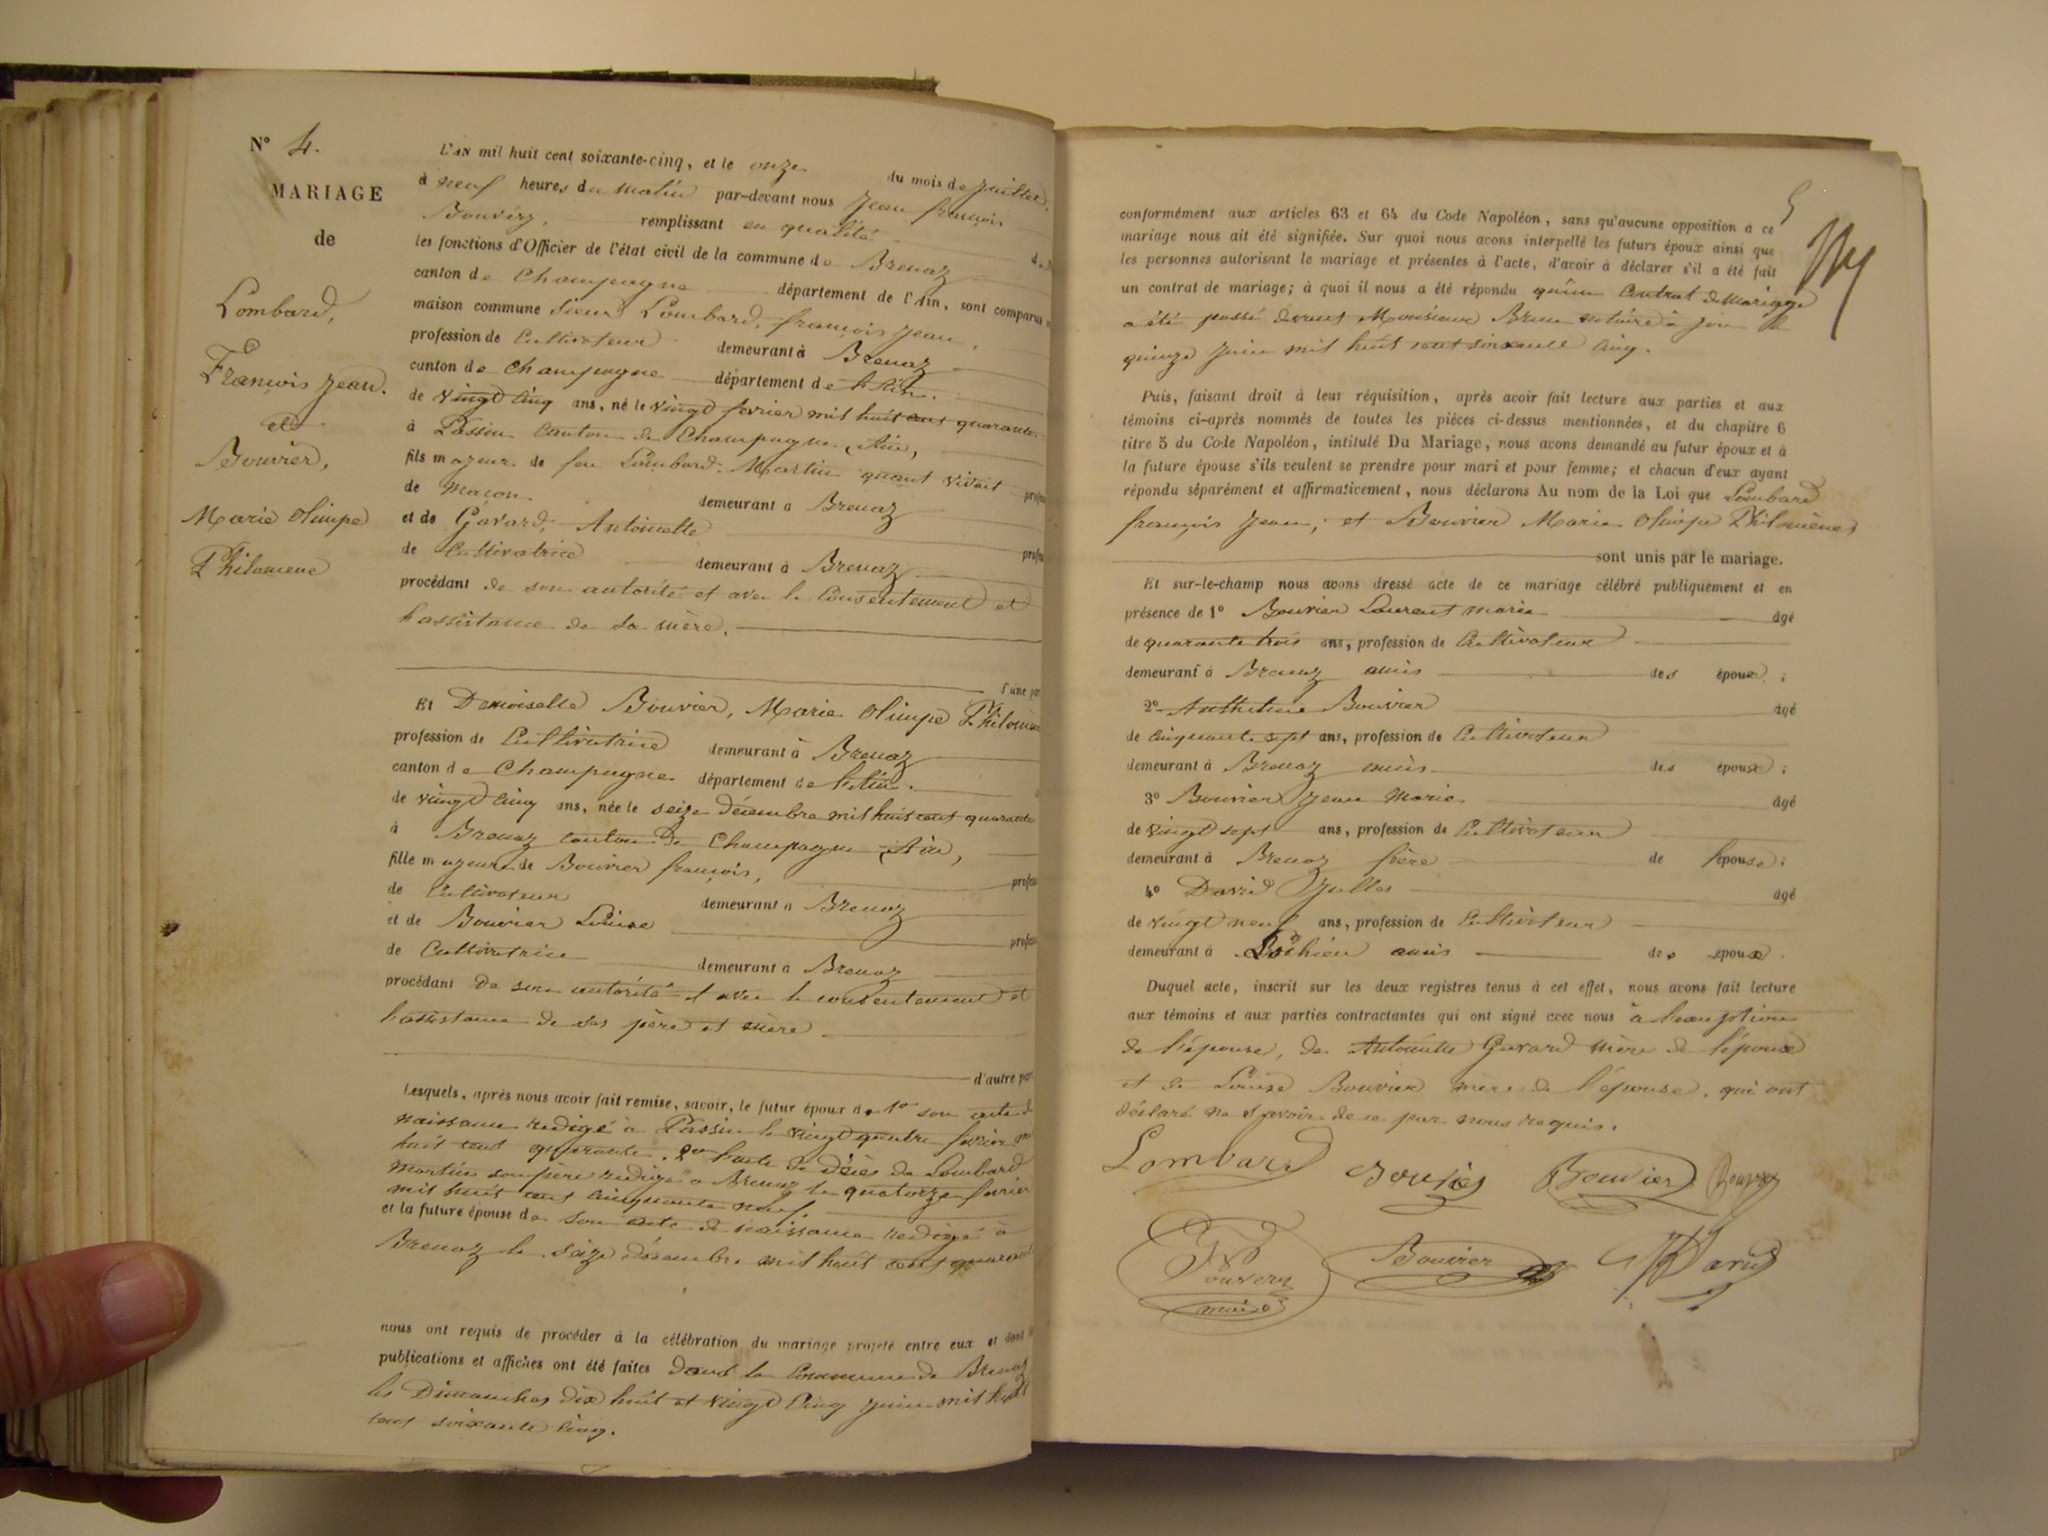 N° 4.
MARIAGE
de
Lombard,
François Jean.
et
Bouvier,
Marie Olimpe
Philomene
L'AN mil huit cent soixante-cinq, et le onze du mois de Juillet.
à neuf heures du matin par-devant nous Jean françois
Bouvery, remplissant en qualité
les fonctions d'Officier de l'état civil de la commune de Brenaz
canton de Champagne département de l'Ain, sont comparus
maison commune Sieur Lombard, françois Jean,
profession de Cultivateur demeurant à Brenaz
canton de Champagne département de l'Ain.
de vingt cinq ans, né le vingt fevrier mil huit cent quarante
à Passin Canton de Champagne, (Ain,
fils majeur de feu Lombard Martin quant vivait
de Macon demeurant a Brenaz
et de Gavard, Antoinette
de Cultivatrice demeurant à Brenaz
procédant de son autorité et avec le Consentement et
l'assistance de sa mère.
l'une par
Et Demoiselle Bouvier, Marie Olimpe Philomène
profession de Cultivatrice demeurant à Brenaz
canton de Champagne département de l'Ain.
de vingt cinq ans, née le seize décembre mil huit cent quarante
à Brenaz canton de Champagne (Ain,
fille majeure de Bouvier françois,
de Cultivateur demeurant a Brenaz
et de Bouvier Louise
de Cultivatrice demeurant a Brenaz
procédant de son autorité et avec le consentement et
l'assistance de ses père et mère
d'autre par
Lesquels, après nous avoir fait remise, savoir, le futur époux de 1° son acte de
naissance redigé à Passin le vingt quatre fevrier mil
huit cent quarante. 2° l'acte de décès de Lombard
Martin son père redigé a Brenaz le quatorze fevrier
mil huit cent cinquante neuf.
et la future épouse de son acte de naissance redigé à
Brenaz le seize décembre mil huit cent quarante
nous ont requis de procéder à la célébration du mariage projeté entre eux et dont
publications et affiches ont été faites dans la Commune de Brenaz
les Dimanches dix huit et vingt Cinq juin mil huit
cent soixante cinq.
5
conformément aux articles 63 et 64 du Code Napoléon, sans qu'aucune opposition à ce
mariage nous ait été signifiée. Sur quoi nous avons interpellé les futurs époux ainsi que
les personnes autorisant le mariage et présentes à l'acte, d'avoir à déclarer s'il a été fait
un contrat de mariage; à quoi il nous a été répondu qu'un Contrat de Mariage
a été passé devant Monsieur Brun notaire à le
quinze Juin mil huit cent soixante Cinq.
Puis, faisant droit à leur réquisition, après avoir fait lecture aux parties et aux
témoins ci-après nommés de toutes les pièces ci-dessus mentionnées, et du chapitre 6
titre 5 du Code Napoléon, intitulé Du Mariage, nous avons demandé au futur époux et à
la future épouse s'ils veulent se prendre pour mari et pour femme; et chacun d'eux ayant
répondu séparément et affirmativement, nous déclarons Au nom de la Loi que Lombard
françois Jean, et Bouvier Marie Olimpe Philomène
sont unis par le mariage.
Et sur-le-champ nous avons dressé acte de ce mariage célébré publiquement et en
présence de 1° Bouvier Laurent Marie âgé
de quarante trois ans, profession de Cultivateur
demeurant à Brenaz amis des époux ;
2° Anthelme Bouvier âgé
de cinquante sept ans, profession de Cultivateur
demeurant à Brenaz amis des époux ;
3° Bouvier Jean Marie âgé
de vingt sept ans, profession de Cultivateur
demeurant à Brenaz frère de l'épouse ;
4° David Jules âgé
de vingt neuf ans, profession de Cultivateur
demeurant à Lochieu amis des époux.
Duquel acte, inscrit sur les deux registres tenus à cet effet, nous avons fait lecture
aux témoins et aux parties contractantes qui ont signé avec nous à l'exception
de l'épouse, de Antoinette Gavard mère de l'époux
et de Louise Bouvier mère de l'épouse, qui ont
déclaré ne savoir de ce par nous requis.
Lombard Bouvier Bouvier
Bouvery Bouvier David
maire